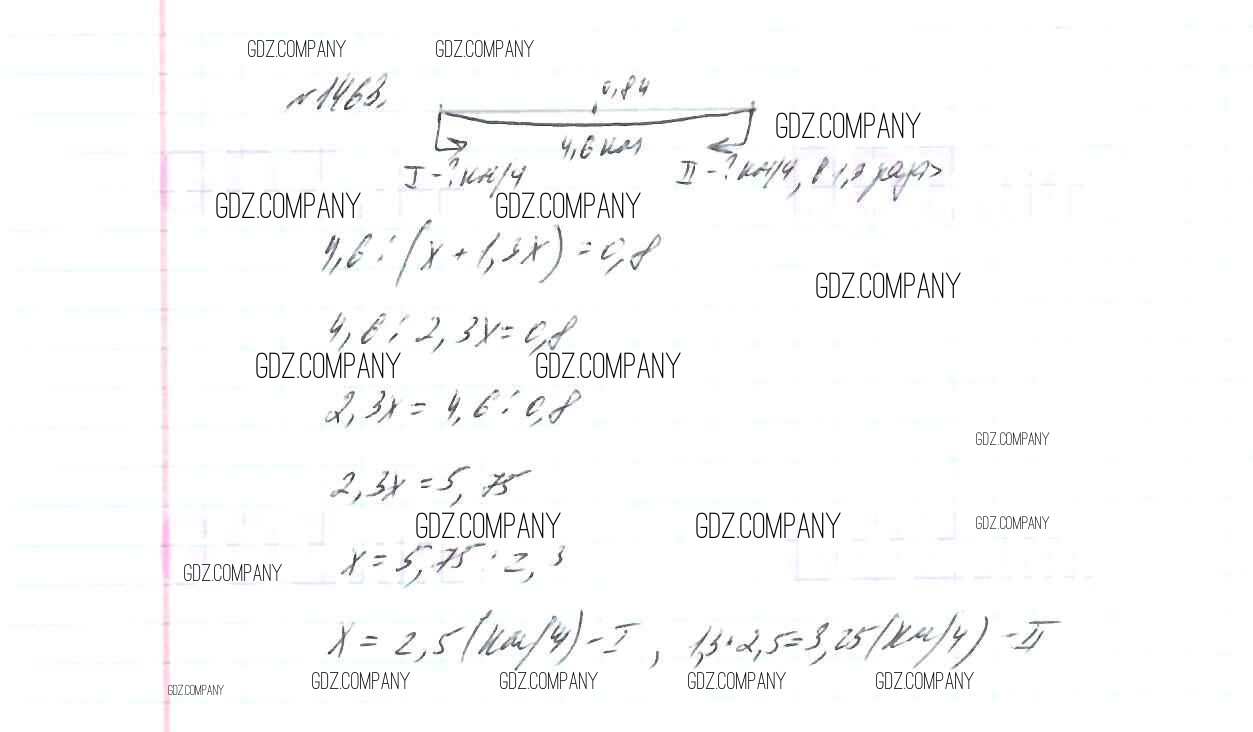 GDZ.COMPANY GDZ.COMPANY
№1463.
0,8 ч
GDZ.COMPANY
4,6 км
I - ? км/ч II - ? км/ч, в 1,3 раза >
GDZ.COMPANY GDZ.COMPANY
4,6 : (х + 1,3х) = 0,8
GDZ.COMPANY
4,6 : 2,3х = 0,8
GDZ.COMPANY GDZ.COMPANY
2,3х = 4,6 : 0,8
GDZ.COMPANY
2,3х = 5,75
GDZ.COMPANY GDZ.COMPANY GDZ.COMPANY
х = 5,75 : 2,3
GDZ.COMPANY
х = 2,5 (км/ч) - I , 1,3 · 2,5 = 3,25 (км/ч) - II
GDZ.COMPANY GDZ.COMPANY GDZ.COMPANY GDZ.COMPANY GDZ.COMPANY